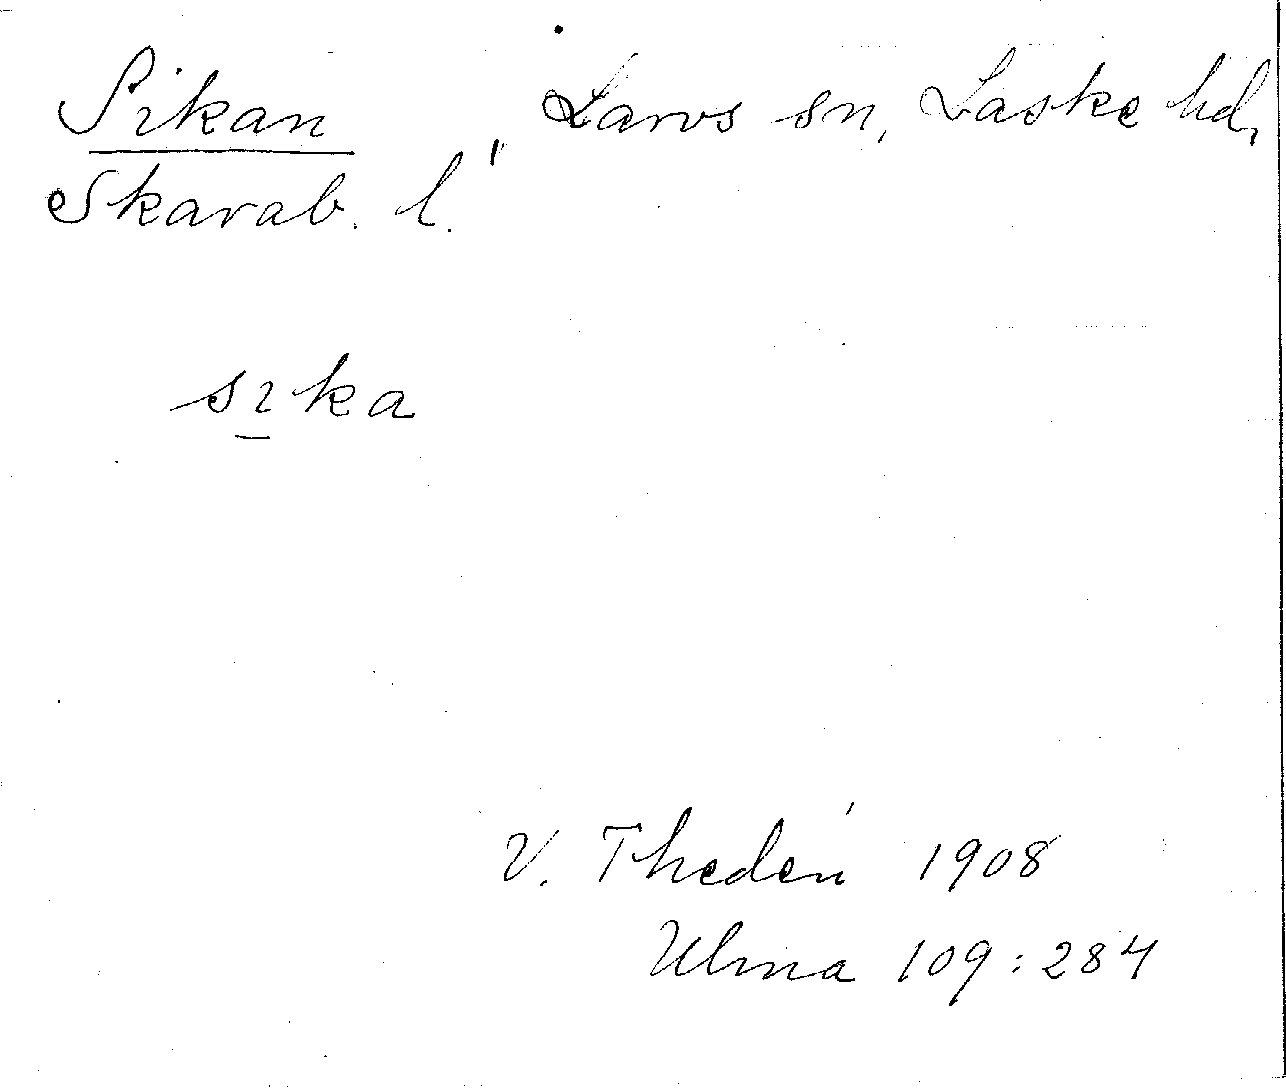 Sikan Larvs sn, Laske hd,
Skarab. l.
sıka
V. Thedén 1908
Ulma 109:284